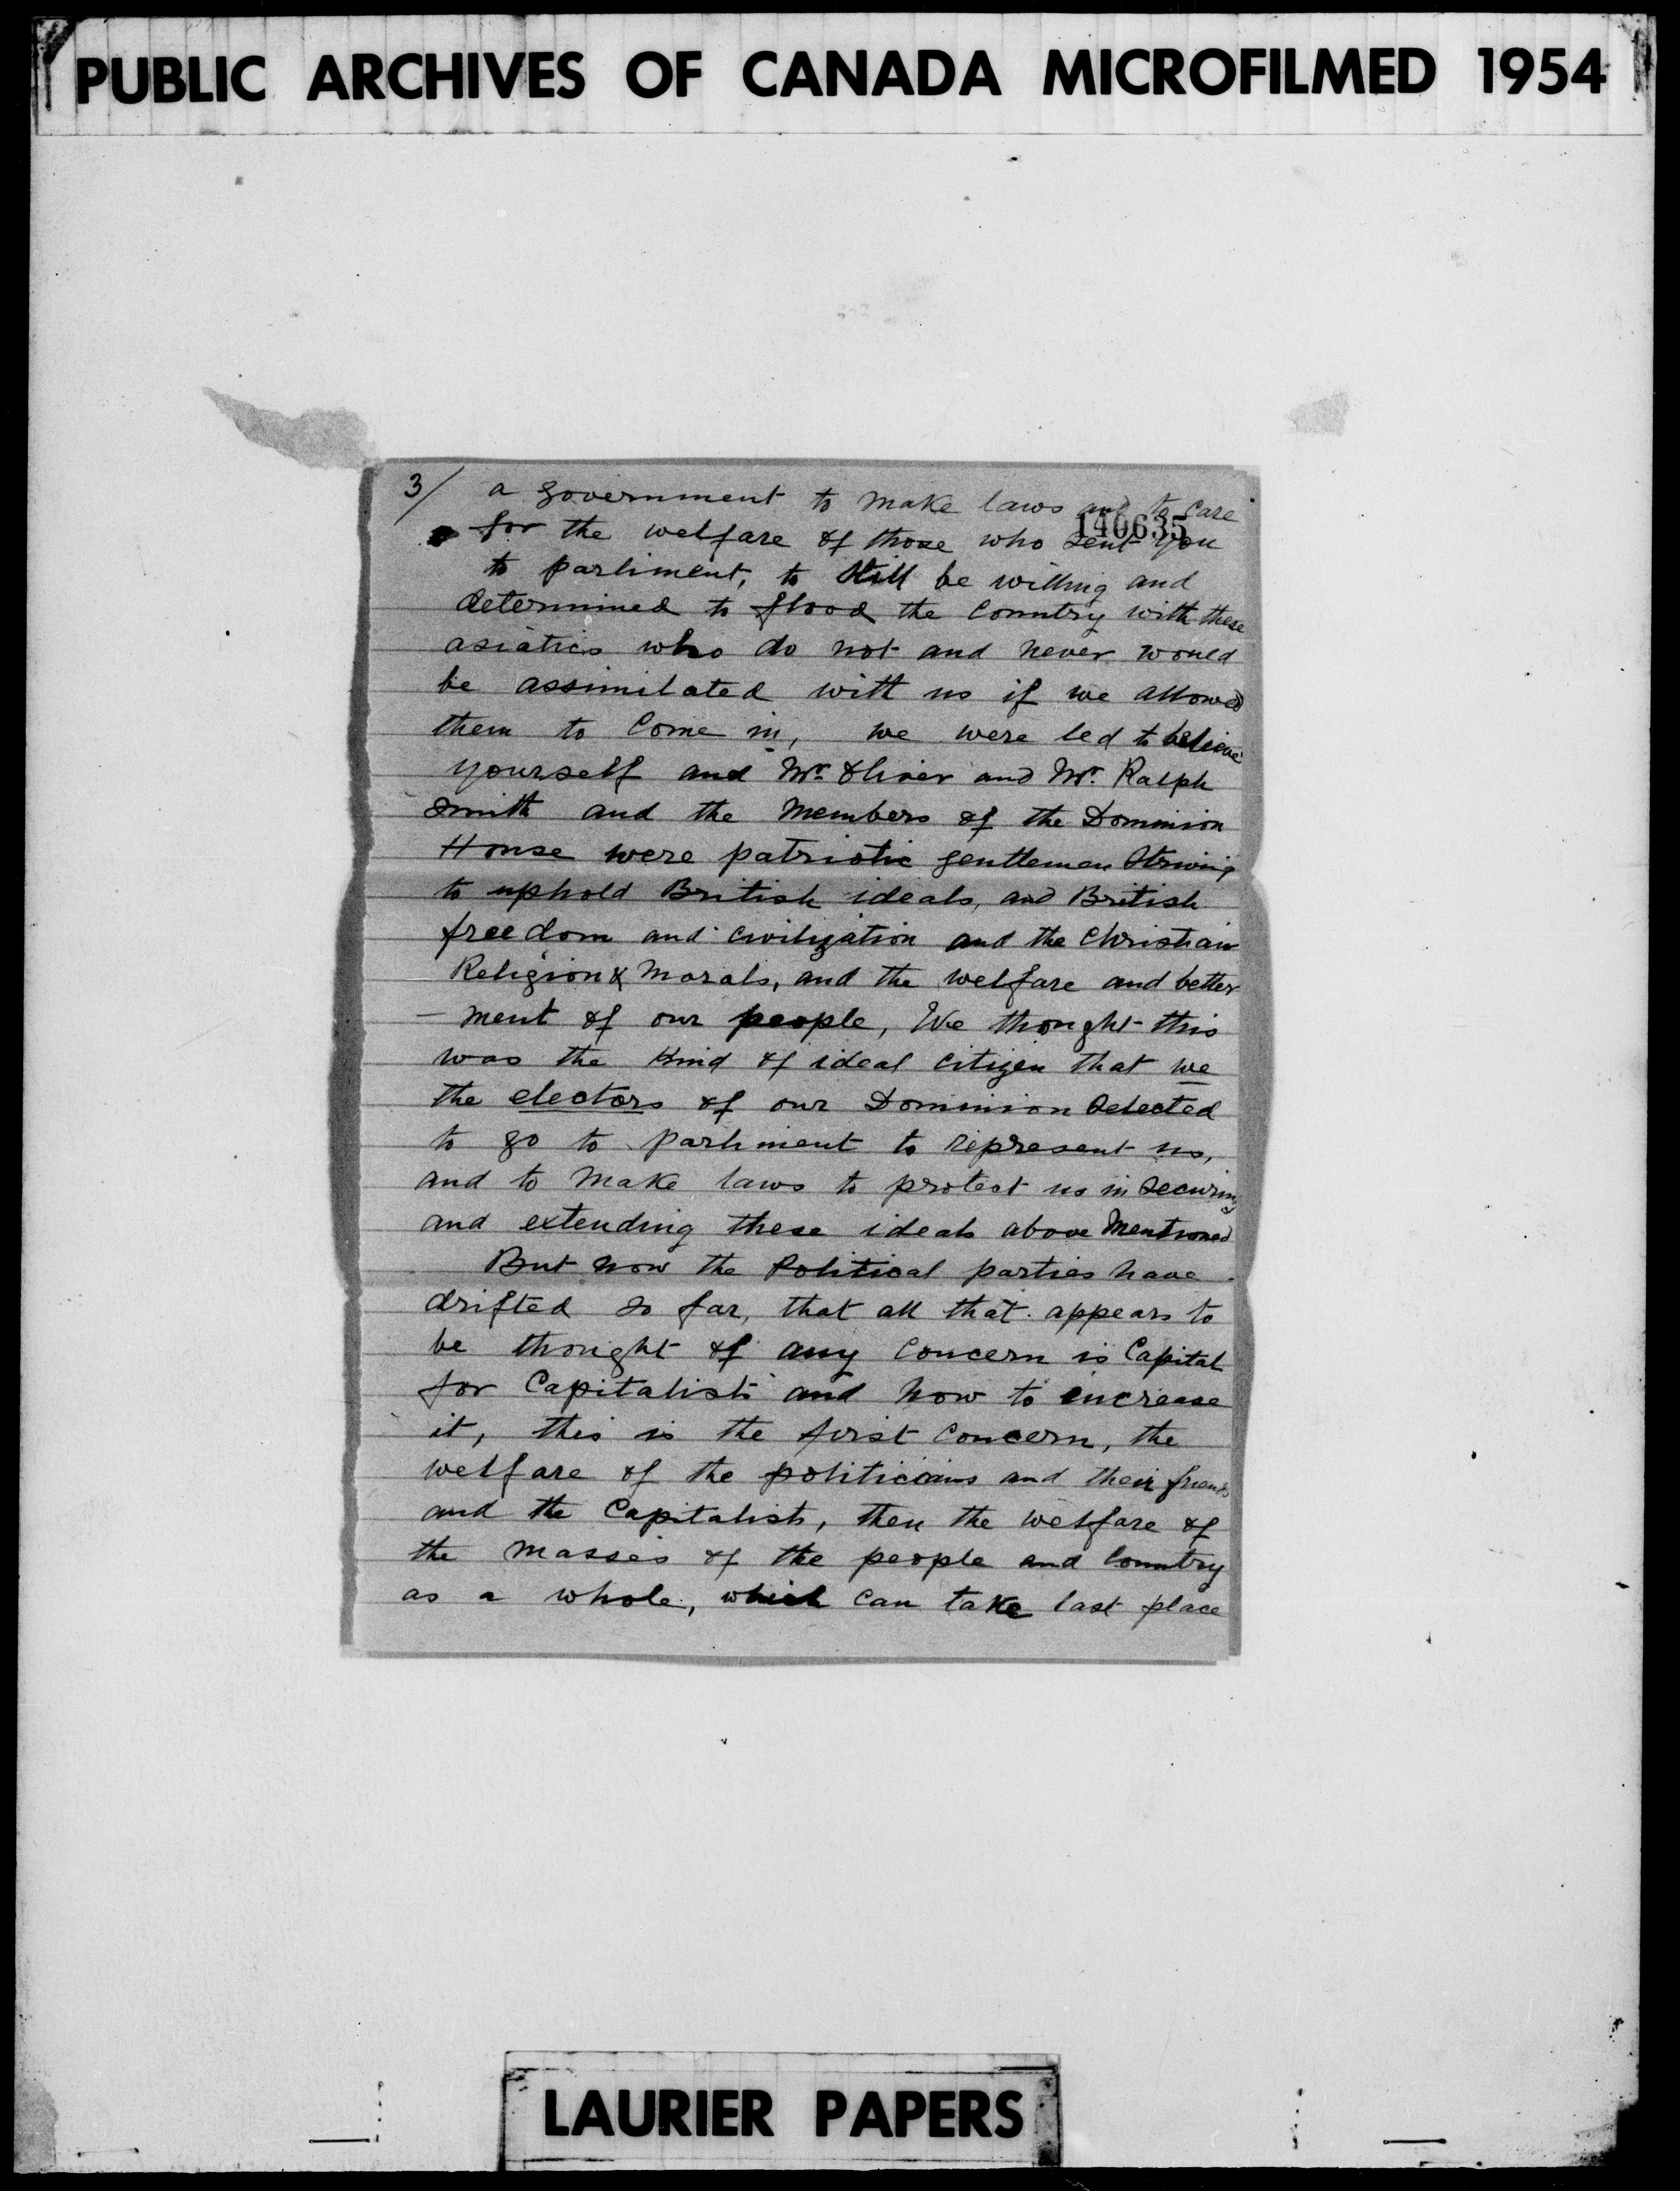 PUBLIC ARCHIVES OF CANADA MICROFILMED 1954
3/ a government to make laws and to care
140635
for the welfare of those who sent you
to parliment, to still be willing and
determined to flood the Country with these
asiatics who do not and never would
be assimilated with us if we allowed
them to Come in, we were led to believe
yourself and Mr. Oliver and Mr. Ralph
Smith and the Members of the Dominion
House were patriotic gentlemen Striving
to uphold British ideals, and British
freedom and civilization and the Christian
Religion & Morals, and the welfare and better
- ment of our people, We thought this
was the Kind of ideal Citizen that we
the electors of our Dominion Selected
to go to parliment to represent us,
and to Make laws to protect us in Securing
and extending these ideals above Mentioned
But now the Political parties have
drifted so far, that all that appears to
be thought of any Concern is Capital
for Capitalists and how to increase
it, this is the first Concern, the
welfare of the politicians and their friends
and the Capitalists, then the welfare of
the Masses of the people and Country
as a whole, which Can take last place
LAURIER PAPERS